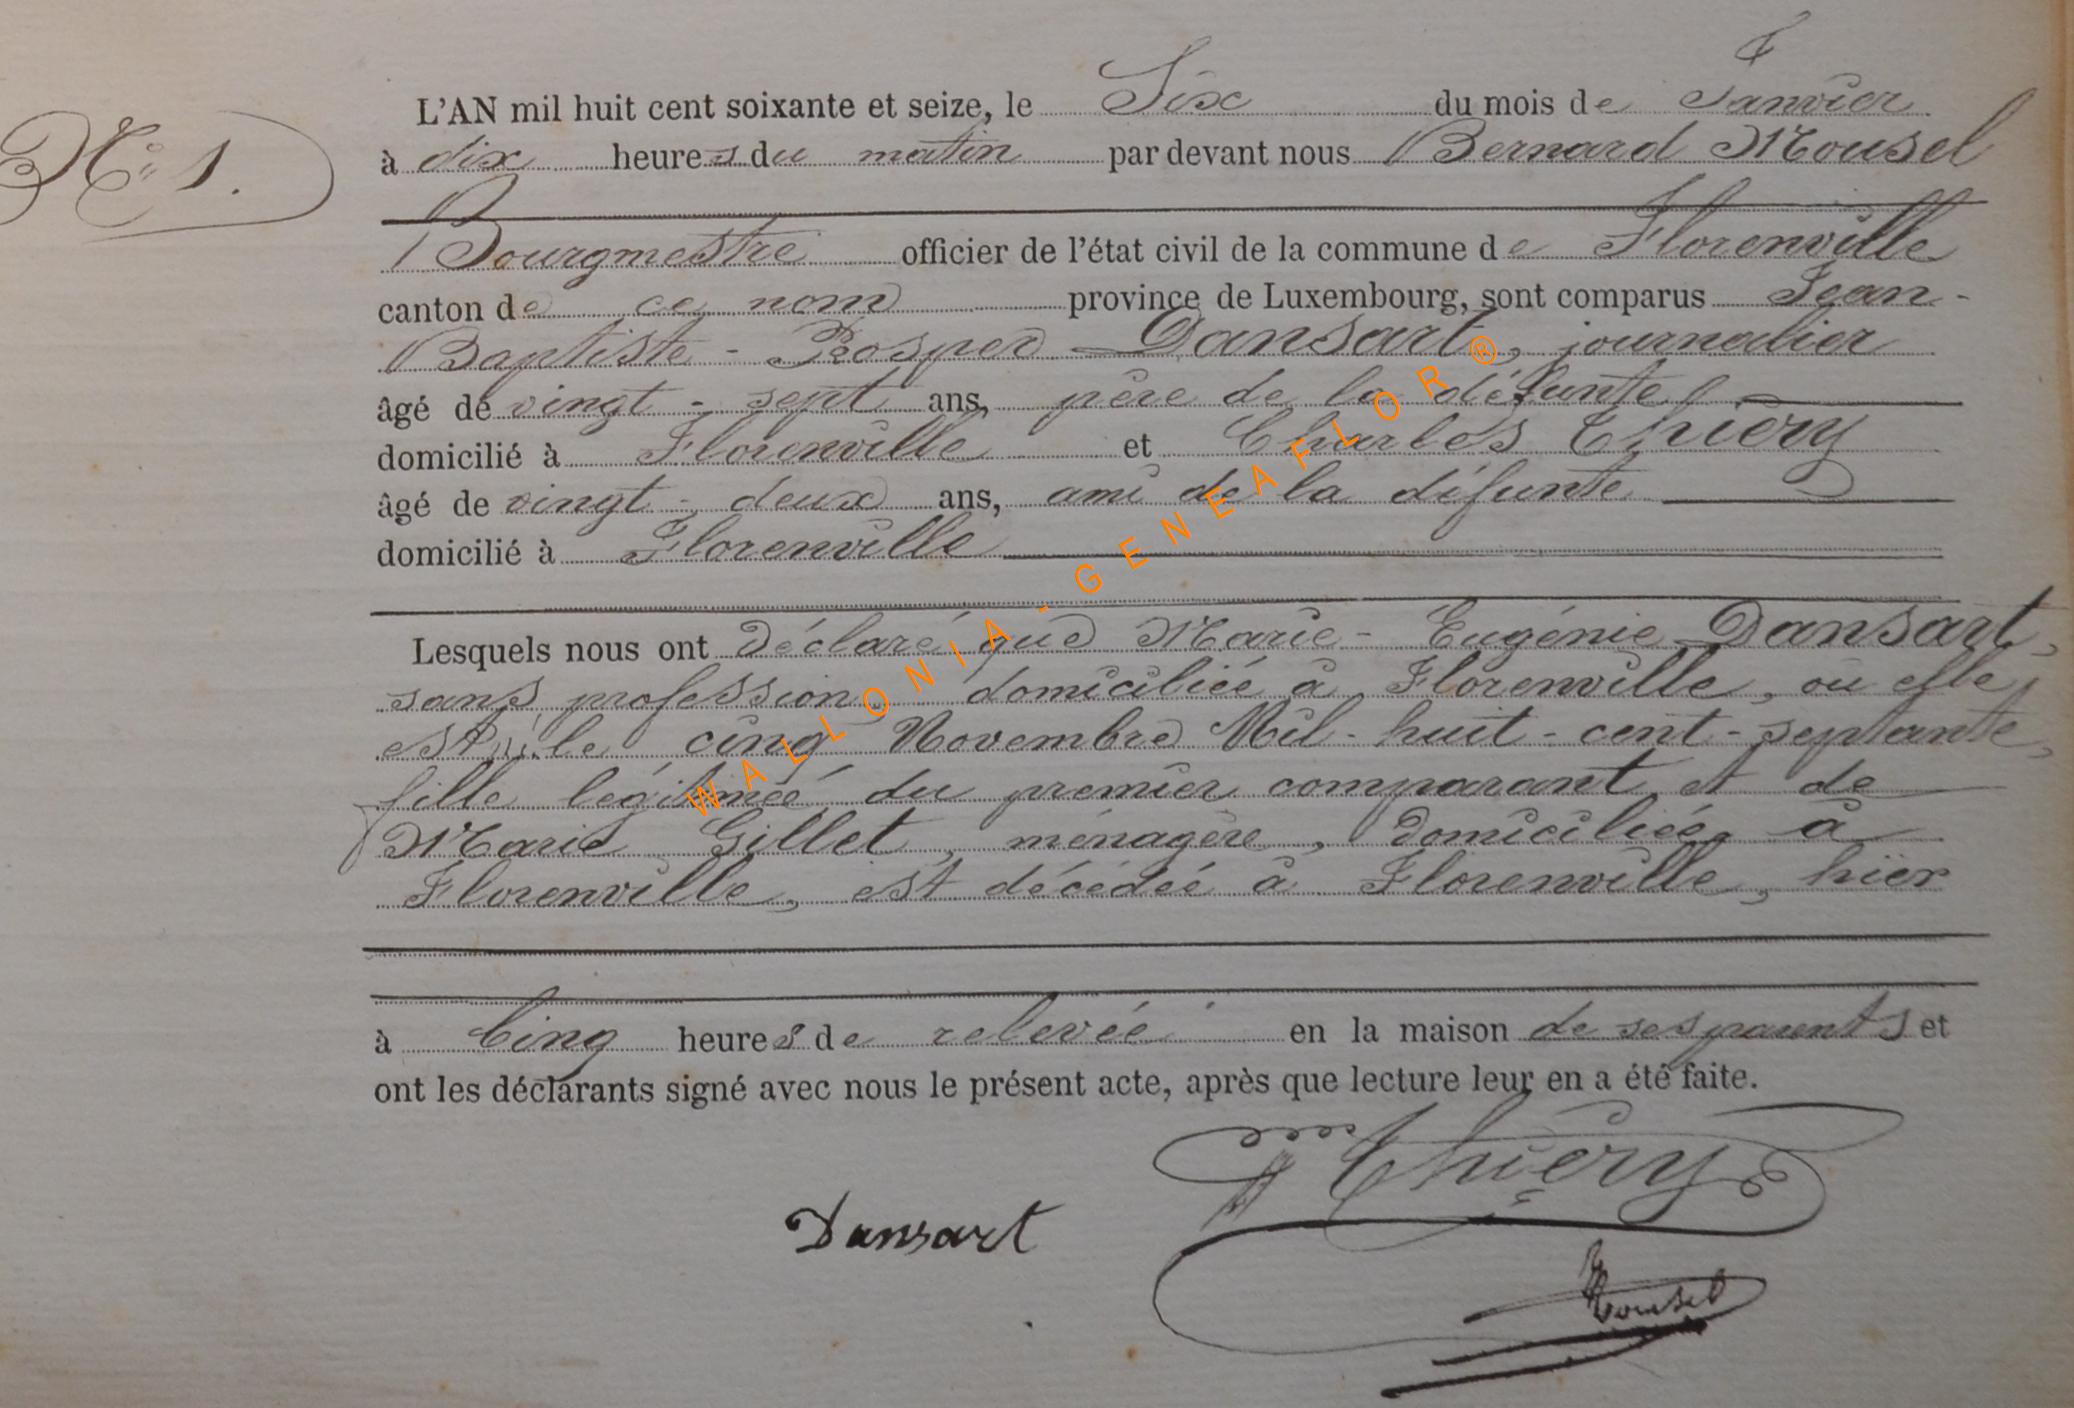 N° 1.
L'AN mil huit cent soixante et seize, le Six du mois de Janvier
à dix heures du matin par devant nous Bernard Mousel
Bourgmestre officier de l'état civil de la commune de Florenville
canton de ce nom province de Luxembourg, sont comparus Jean-
Baptiste - Prosper Dansart, journalier
âgé de vingt - sept ans, père de la défunte
domicilié à Florenville et Charles Thiéry
âgé de vingt - deux ans, ami de la défunte
domicilié à Florenville
Lesquels nous ont déclaré que Marie - Eugénie Dansart,
sans profession domiciliée à Florenville, où elle
est le cinq Novembre Mil - huit - cent - septante,
fille légitimée du premier comparant et de
Marie Gillet, ménagère, domiciliée à
Florenville, est décédée à Florenville, hier
à Cinq heures de relevée en la maison de ses parents et
ont les déclarants signé avec nous le présent acte, après que lecture leur en a été faite.
Thiéry
Dansart
Mousel
WALLONIA-GENEAFLOR®